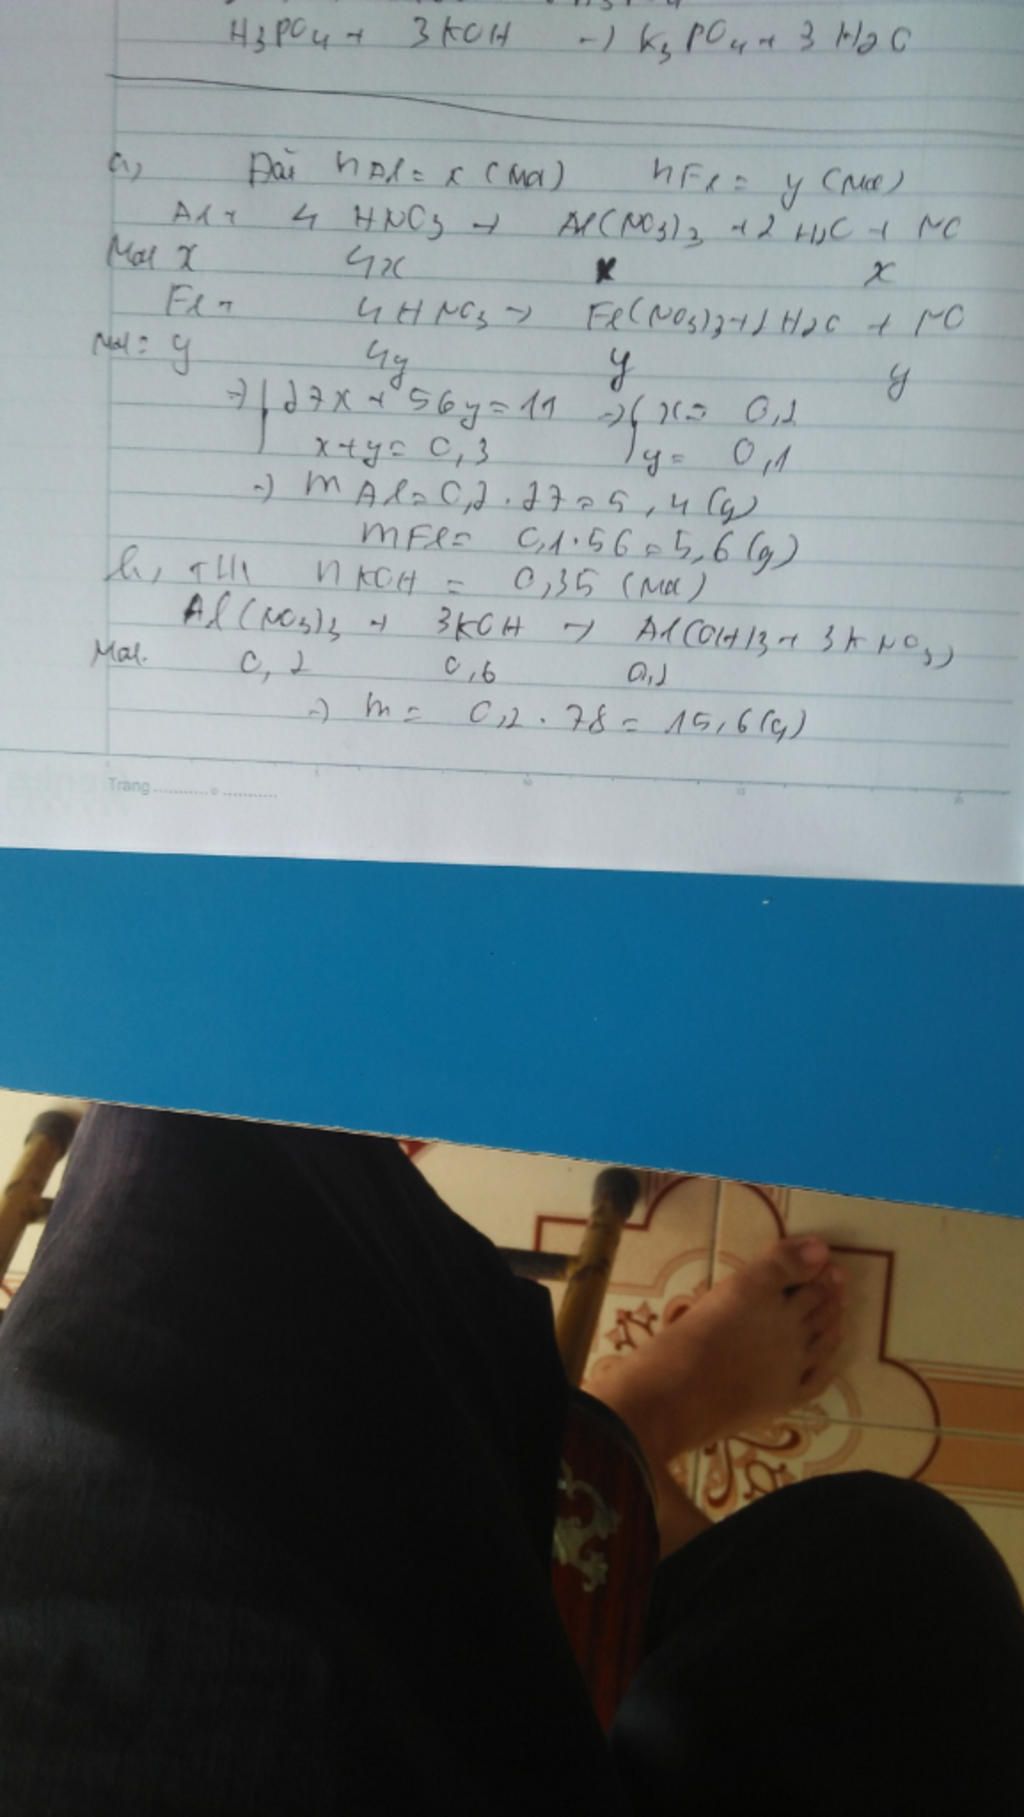 H3PO4 + 3KOH → K3PO4 + 3H2O
a, Đặt nAl = x (mol) nFe = y (mol)
Al + 4HNO3 → Al(NO3)3 + 2H2O + NO
Mol x 4x x x
Fe + 4HNO3 → Fe(NO3)3 + 2H2O + NO
Mol: y 4y y y
=> 27x + 56y = 11 => x = 0,2
x + y = 0,3 y = 0,1
=> mAl = 0,2 . 27 = 5,4 (g)
mFe = 0,1 . 56 = 5,6 (g)
b, TH1 nKOH = 0,35 (mol)
Al(NO3)3 + 3KOH → Al(OH)3 + 3KNO3
Mol. 0,2 0,6 0,2
=> m = 0,2 . 78 = 15,6 (g)
Trang